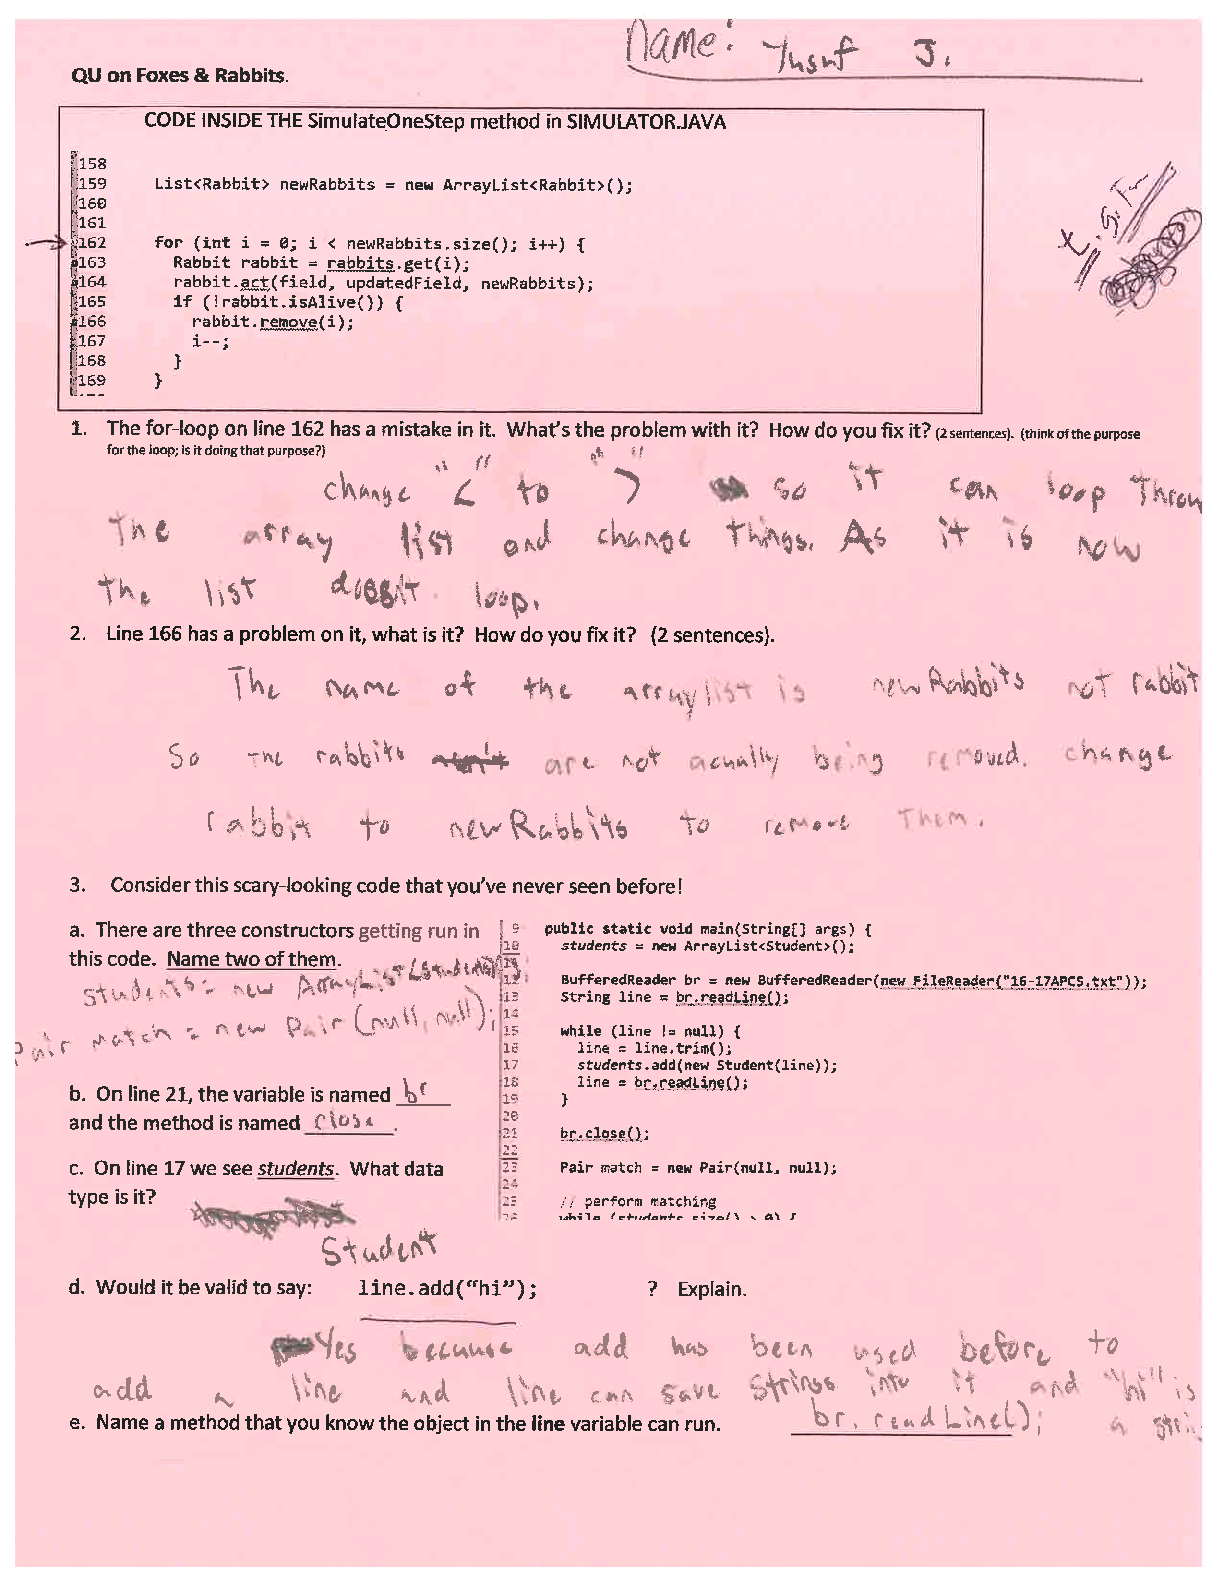 Name: Yusuf J.
QU on Foxes & Rabbits.
CODE INSIDE THE SimulateOneStep method in SIMULATOR.JAVA
158
159 List<Rabbit> newRabbits = new ArrayList<Rabbit>();
160
161
162 for (int i = 0; i < newRabbits.size(); i++) {
163 Rabbit rabbit = rabbits.get(i);
164 rabbit.act(field, updatedField, newRabbits);
165 if (!rabbit.isAlive()) {
166 rabbit.remove(i);
167 i--;
168 }
169 }
1. The for-loop on line 162 has a mistake in it. What's the problem with it? How do you fix it? (2 sentences). (think of the purpose
for the loop; is it doing that purpose?)
change "<" to ">" so it can loop throu
the array list and change things. As it is now
the list doesn't loop.
2. Line 166 has a problem on it, what is it? How do you fix it? (2 sentences).
The name of the arraylist is newRabbits not rabbit
So the rabbits are not acually being removed. change
rabbit to newRabbits to remove them.
3. Consider this scary-looking code that you've never seen before!
a. There are three constructors getting run in
this code. Name two of them.
students = new ArrayList<Student>();
Pair match = new Pair(null, null);
b. On line 21, the variable is named br
and the method is named close.
c. On line 17 we see students. What data
type is it?
Student
9 public static void main(String[] args) {
10 students = new ArrayList<Student>();
11
12 BufferedReader br = new BufferedReader(new FileReader("16-17APCS.txt"));
13 String line = br.readLine();
14
15 while (line != null) {
16 line = line.trim();
17 students.add(new Student(line));
18 line = br.readLine();
19 }
20
21 br.close();
22
23 Pair match = new Pair(null, null);
24
25 // perform matching
26 while (students.size() > 0) {
d. Would it be valid to say: line.add("hi"); ? Explain.
Yes because add has been used before to
add a line and line can save strings into it and "hi" is
a strin
e. Name a method that you know the object in the line variable can run. br.readLine();